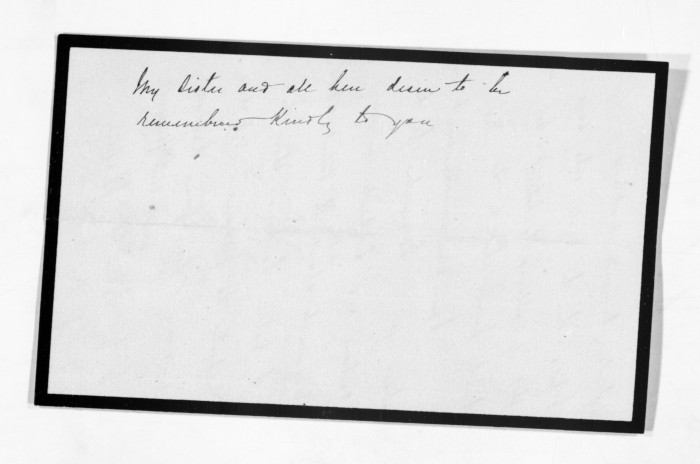 My sister and all here desire to be
remembered kindly to you